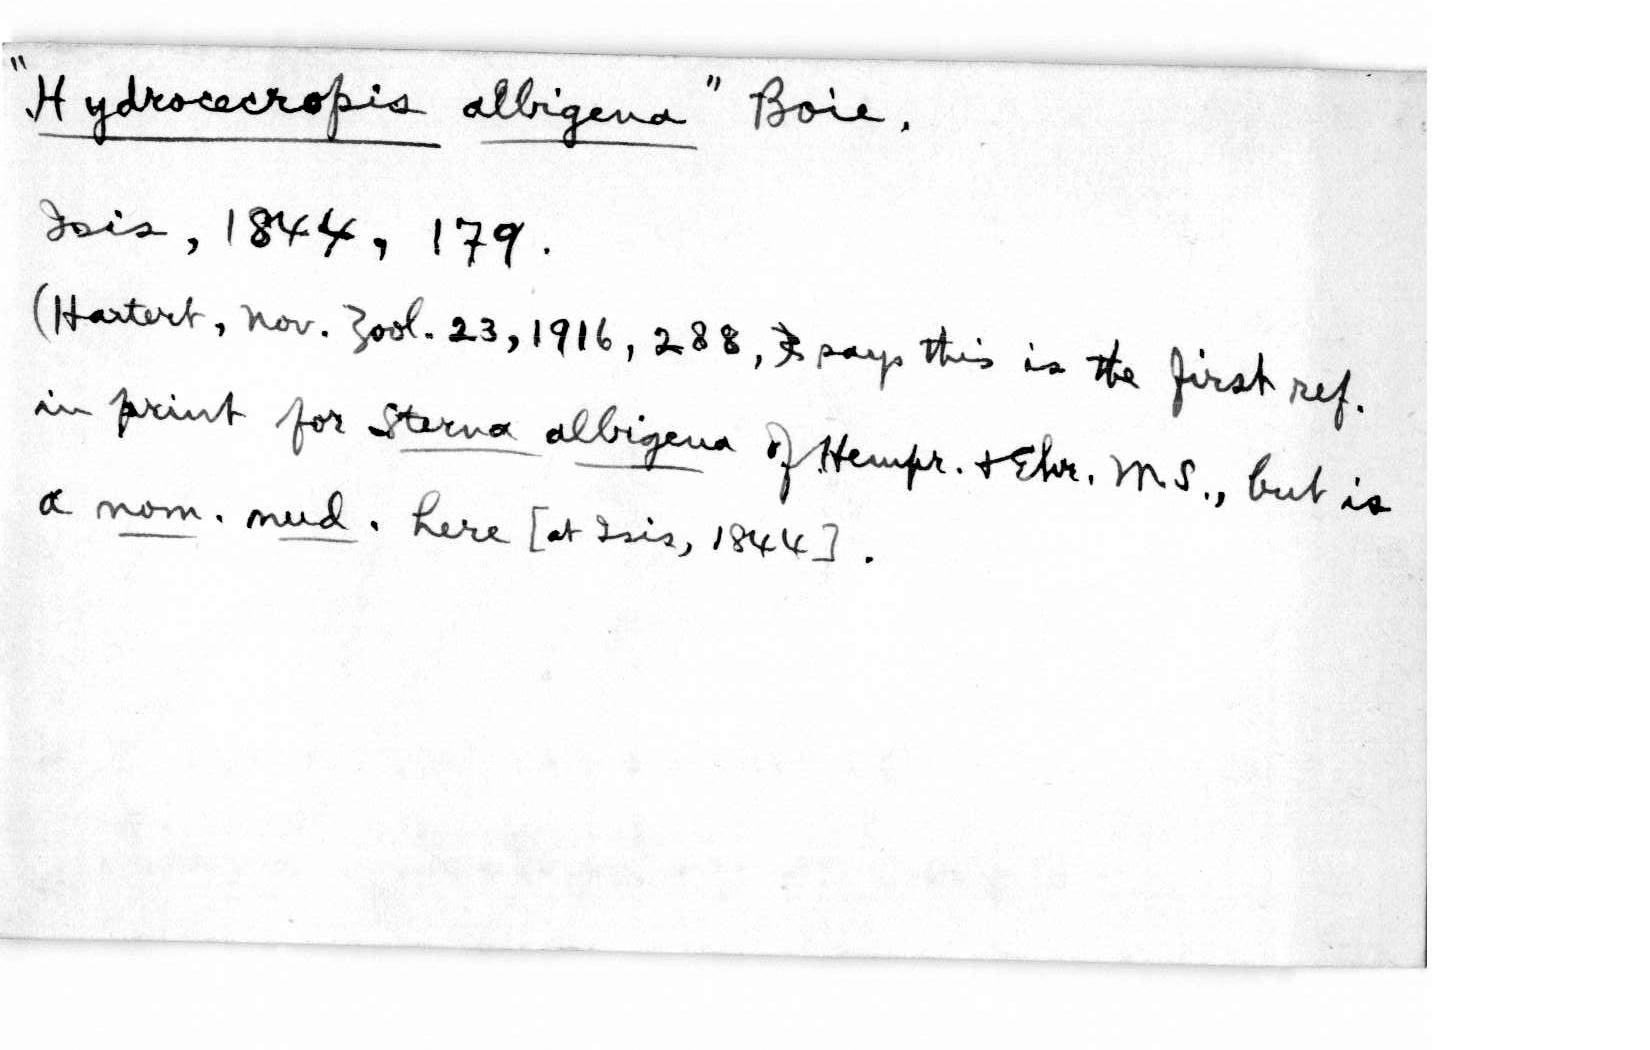 "Hydrocecropis albigena" Boie.
Isis, 1844, 179.
(Hartert, Nov. Zool. 23, 1916, 288, says this is the first ref.
in print for Sterna albigena of Hempr. & Ehr. M.S., but is
a nom. nud. here [at Isis, 1844].